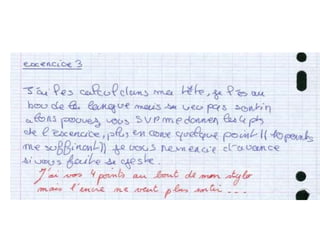 exercice 3
J'ai les calcul dans ma tête, je l'es au
bou de la langue mais sa veu pas sortir
alors pouvez vous SVP me donner les 4 pts
de l'exercice, plus en core quelque point (( 10 points
me suffiront )) je vous remercie d'avance
si vous faite se geste.
J'ai vos 4 points au bout de mon stylo
mais l'encre ne veut plus sortir ...